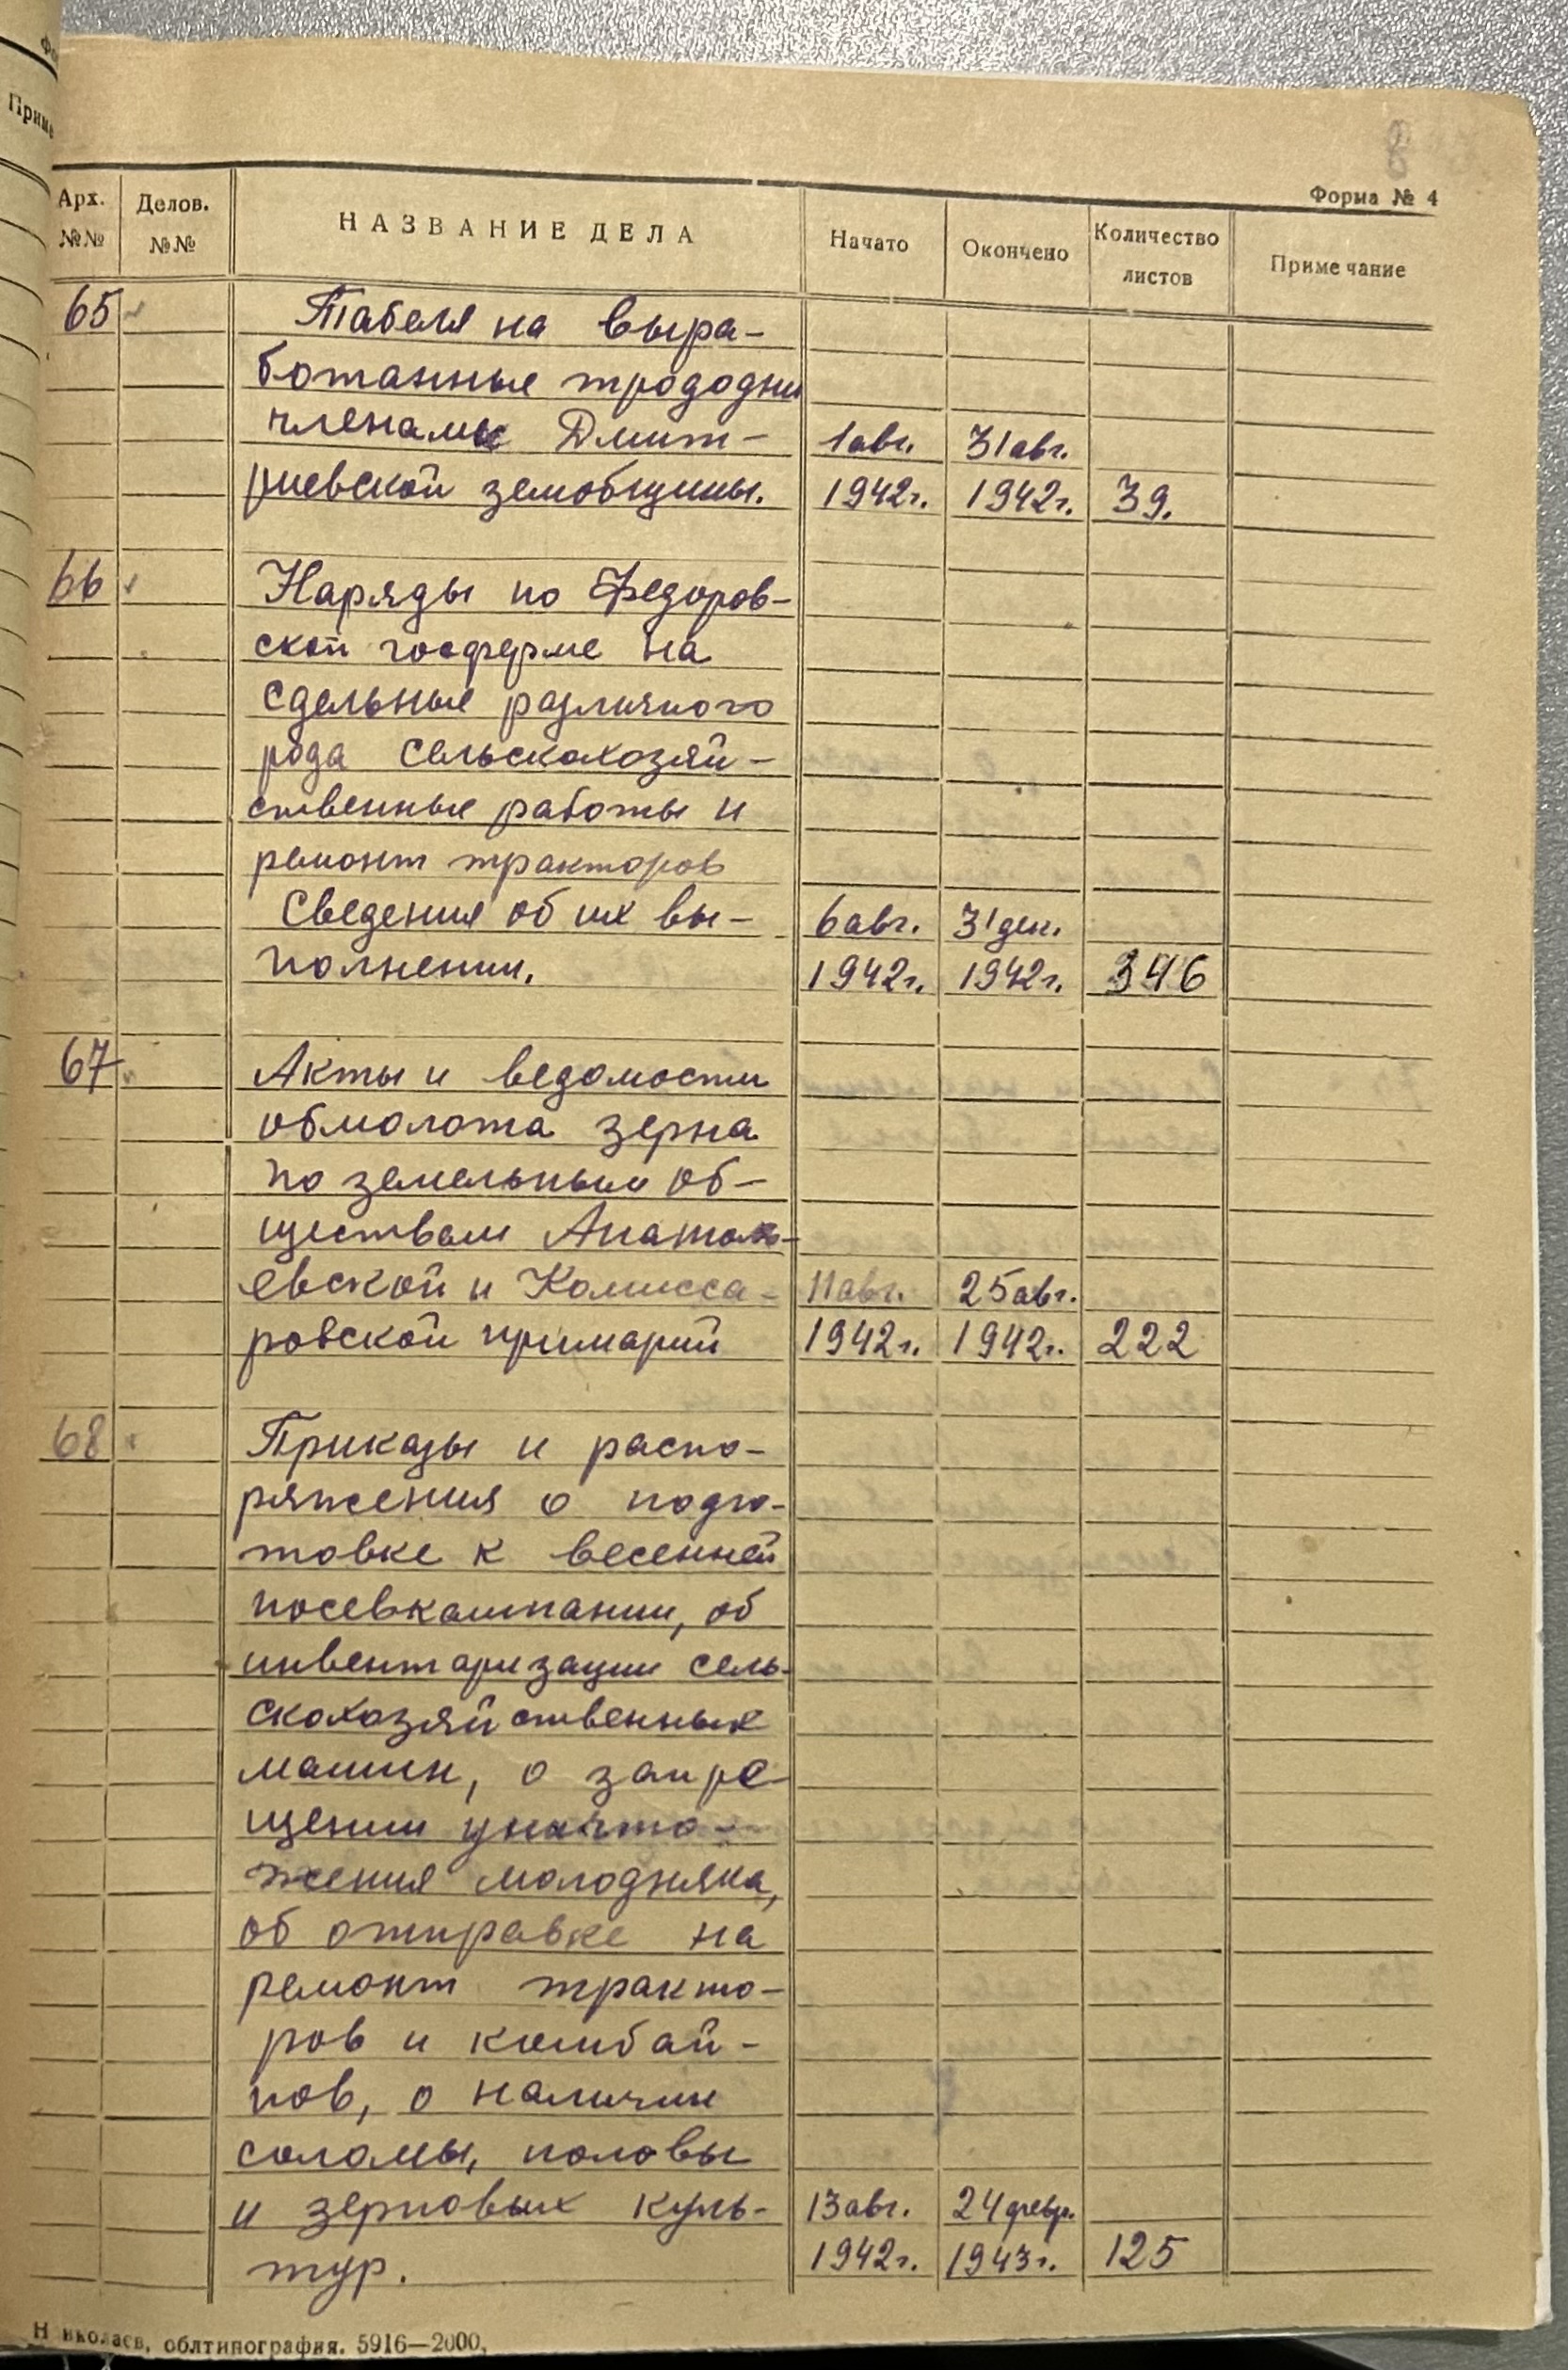 Приме
8
Форма № 4
Арх. №№ Делов. №№ НАЗВАНИЕ ДЕЛА Начато Окончено Количество листов Примечание
65 Табеля на выра-
ботанные трододни
членами Дмит- 1 авг. 31 авг.
риевской земобщины. 1942г. 1942г. 39.
66 Наряды по Федоров-
ской госферме на
сдельные различного
рода сельскохозяй-
ственные работы и
ремонт тракторов
Сведения об их вы- 6 авг. 31 ден.
полнении. 1942г. 1942г. 346
67 Акты и ведомости
обмолота зерна
по земельным об-
ществам Анатоль-
евской и Комисса- 11 авг. 25 авг.
ровской примарий 1942г. 1942г. 222
68 Приказы и распо-
ряжения о подго-
товке к весенней
посевкампании, об
инвентаризации сель-
скохозяйственных
машин, о запре-
щении уничто-
жения молодняка,
об отправке на
ремонт тракто-
ров и комбай-
нов, о наличии
соломы, половы
и зерновых куль- 13 авг. 24 февр.
тур. 1942г. 1943г. 125
Николаев, облтипография. 5916—2000.